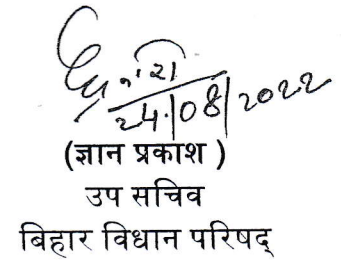 24/08/2022
(ज्ञान प्रकाश )
उप सचिव
बिहार विधान परिषद्